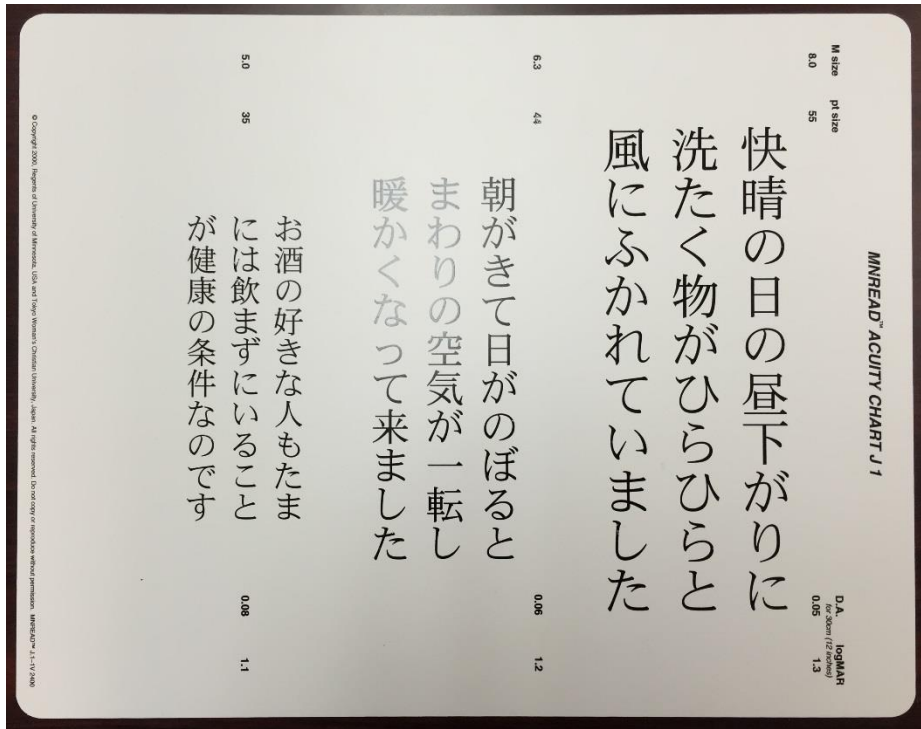 MNREAD™ ACUITY CHART J 1
M size pt size
D.A. logMAR
for 30cm (12 inches)
8.0 55
0.05 1.3
快晴の日の昼下がりに
洗たく物がひらひらと
風にふかれていました
6.3 44
0.06 1.2
朝がきて日がのぼると
まわりの空気が一転し
暖かくなって来ました
5.0 35
0.08 1.1
お酒の好きな人もたま
には飲まずにいること
が健康の条件なのです
© Copyright 2000, Regents of University of Minnesota, USA and Tokyo Woman's Christian University, Japan. All rights reserved. Do not copy or reproduce without permission. MNREAD™ J.1–1V 2400